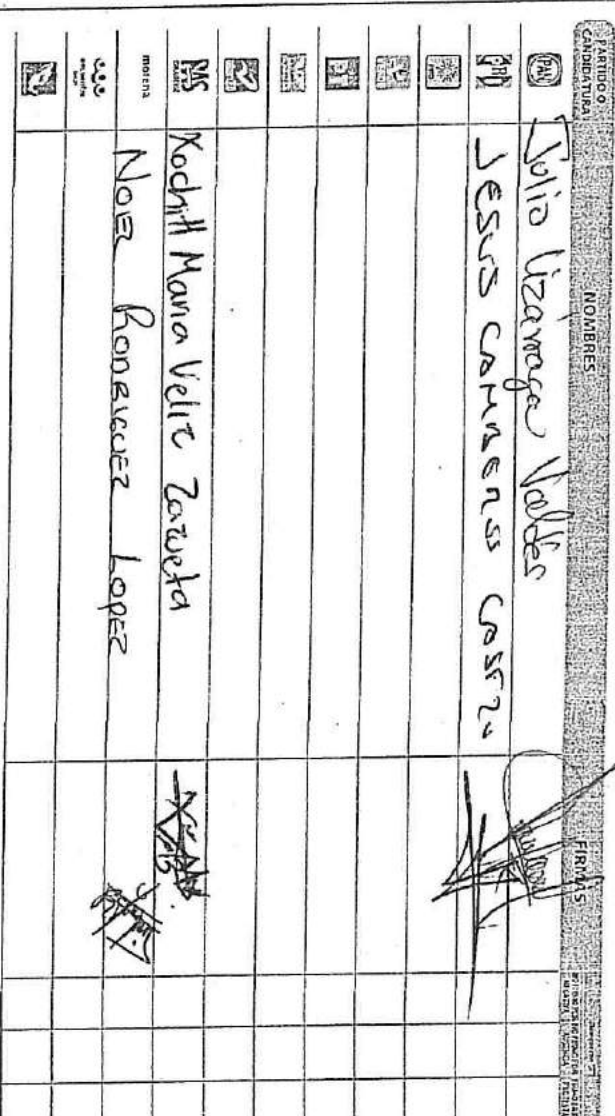 PARTIDO O CANDIDATURA NOMBRES FIRMAS
PAN Julio Lizarraga Valdes
PRD JESUS CAMBEROS CASTRO
PAS Xochitl Maria Veliz Zazueta
morena NOE RODRIGUEZ LOPEZ
encuentro